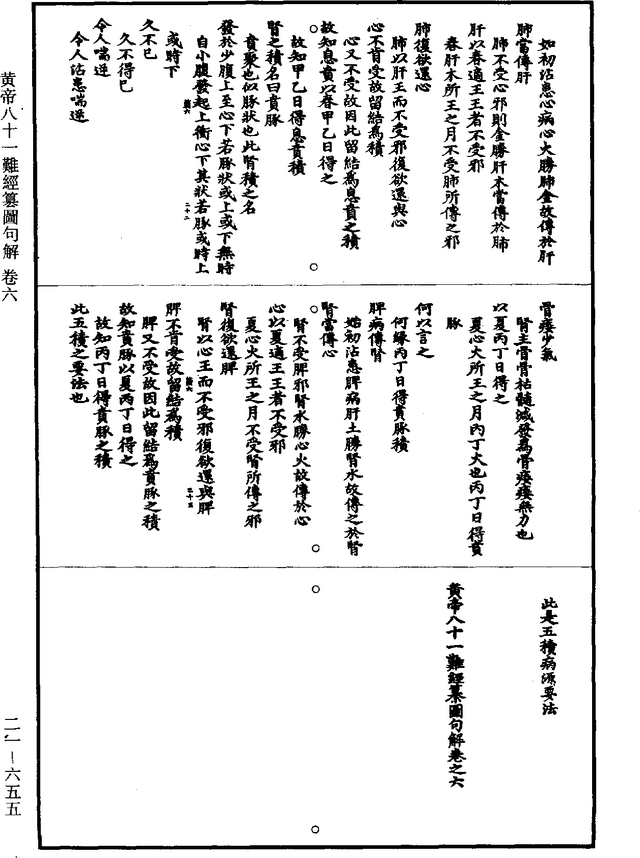 如初沾患心病心火勝肺金故傳於肝
肺當傳肝
肺不受心邪則金勝肝木當傳於肺
肝以春適王王者不受邪
春肝木所王之月不受肺所傳之邪
肺復欲還心
肺以肝王而不受邪復欲還與心
心不肯受故留結為積
心又不受故因此留結為息賁之積
故知息賁以春甲乙日得之
故知甲乙日得息賁積
腎之積名曰賁豚
賁聚也似豚狀也此腎積之名
發於少腹上至心下若豚狀或上或下無時
自小腹發起上衝心下其狀若豚或時上
或時下
久不已
久不得已
令人喘逆
令人沾患喘逆
骨痿少氣
腎主骨骨枯髓減發為骨痿痿無力也
以夏丙丁日得之
夏心火所王之月丙丁火也丙丁日得賁
豚
何以言之
何緣丙丁日得賁豚積
脾病傳腎
始初沾患脾病肝土勝腎水故傳之於腎
腎當傳心
腎不受脾邪腎水勝心火故傳於心
心以夏適王王者不受邪
夏心火所王之月不受腎所傳之邪
腎復欲還脾
腎以心王而不受邪復欲還與脾
脾不肯受故留結為積
脾又不受故因此留結為賁豚之積
故知賁豚以夏丙丁日得之
故知丙丁日得賁豚之積
此五積之要法也
此是五積病源要法
黃帝八十一難經纂圖句解卷之六
黄帝八十一難經纂圖句解 卷六
二一－六五五